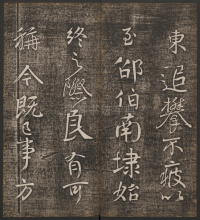 東追攀不疲以
至邰伯南埭始
終之際良有可
稱今既已事方